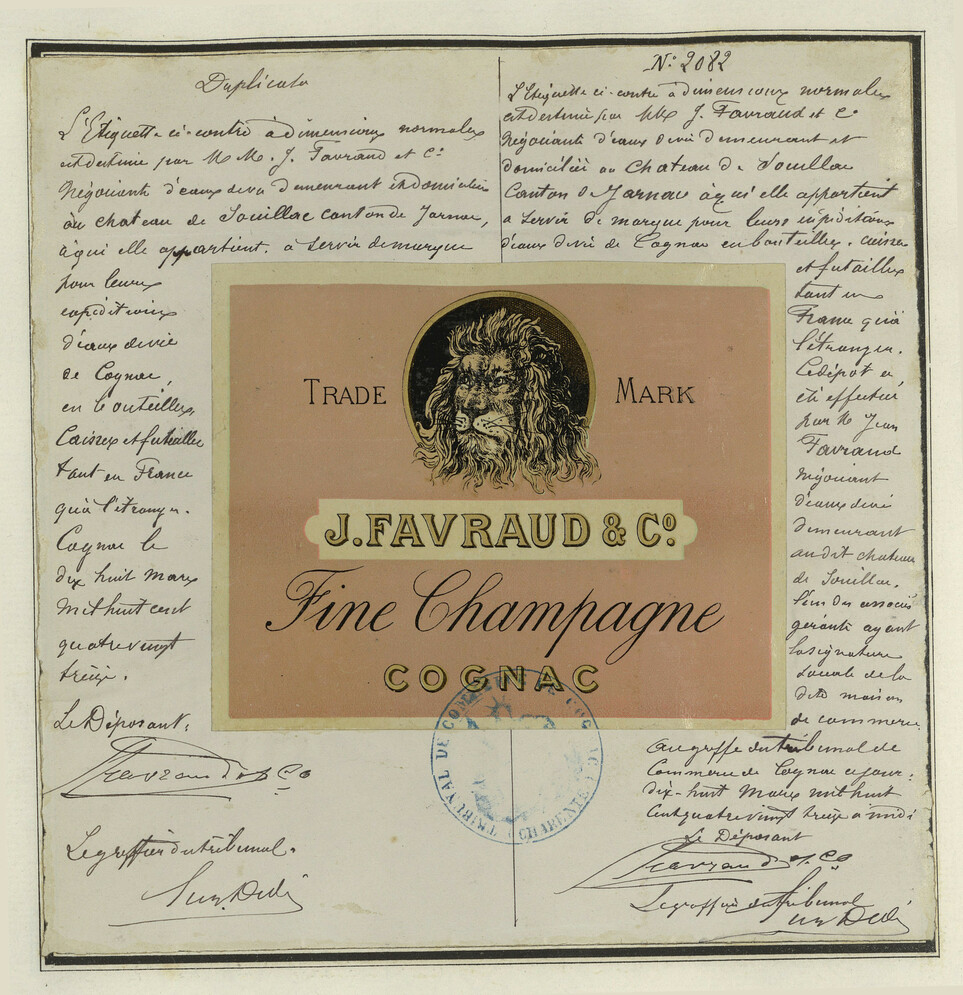 Duplicata
L'Etiquette ci-contre à dimensions normales
est destinée par M M. J. Favraud et Cie
Négociants d'eaux de vie demeurant et domiciliés
au chateau de Souillac canton de Jarnac,
à qui elle appartient, à servir de marque
pour leurs
expéditions
d'eaux de vie
de Cognac,
en bouteilles,
Caisses et futailles
tant en France
qu'à l'étranger.
Cognac le
dix huit Mars
Mil huit cent
quatre vingt
treize.
Le Déposant,
Favraud & Co
Le greffier du tribunal.
N° 2082
L'Etiquette ci-contre à dimensions normales
est destinée par MM J. Favraud et Ce
Négociants d'eaux de vie demeurant et
domiciliés au Chateau de Souillac
Canton de Jarnac à qui elle appartient
a servir de marque pour leurs expéditions
d'eaux de vie de Cognac en bouteilles, caisses
et futailles
tant en
France qu'à
l'étranger.
Le dépôt a
été effectué
par M Jean
Favraud
négociant
d'eaux de vie
demeurant
au dit chateau
de Souillac.
l'un des associés
gérants ayant
la signature
sociale de la
dite maison
de commerce.
Au greffe du tribunal de
Commerce de Cognac ce jour.
dix-huit Mars mil huit
cent quatre vingt treize à midi
Le Déposant
Favraud & Co
Le greffier du tribunal
TRADE MARK
J. FAVRAUD & Co.
Fine Champagne
COGNAC
TRIBUNAL DE COMMERCE DE COGNAC (CHARENTE)